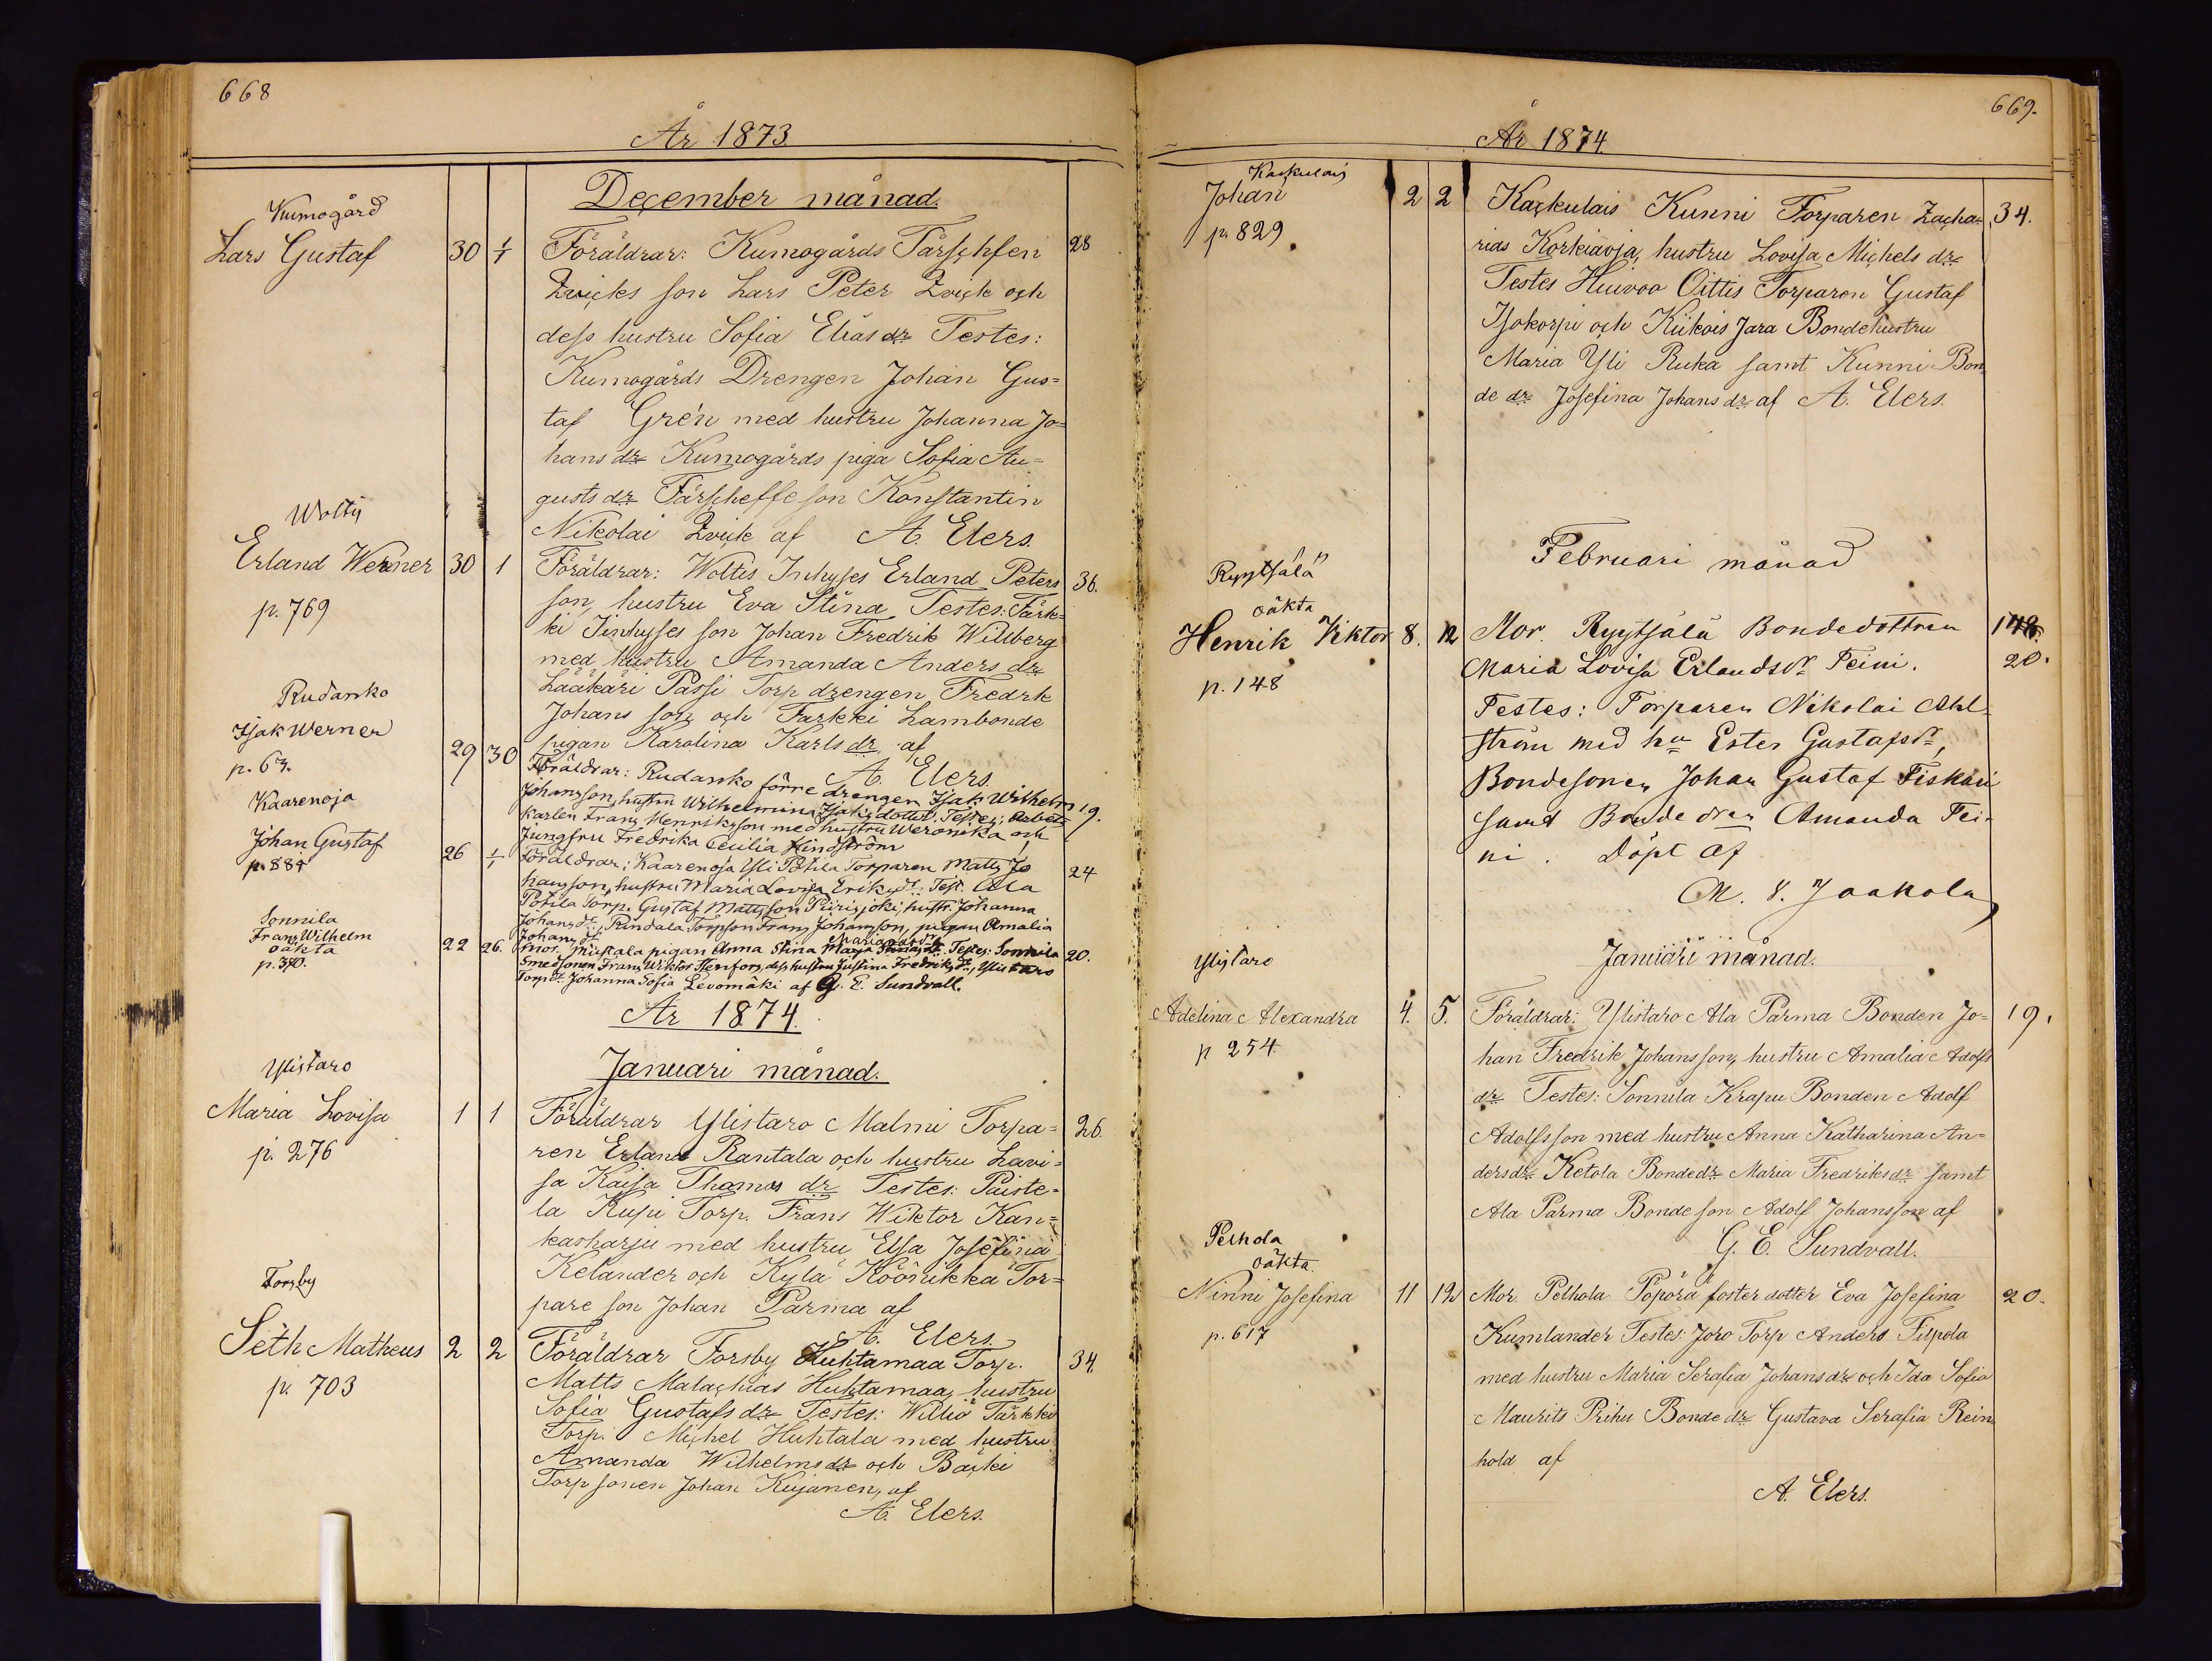 668
År 1873.
December månad.
Kumogård
Lars Gustaf 30 1/1 Föräldrar: Kumogårds Färschfen 28
Zwicks son Lars Peter Zwick och
dess hustru Sofia Eliasdr Testes:
Kumogårds Drengen Johan Gus=
taf Grén med hustru Johanna Jo=
hansdr Kumogårds piga Sofia Au=
gustsdr Färscheffe son Konstantin
Nikolai Zwick af A. Elers.
Woltis
Erland Werner 30 1 Föräldrar: Woltis Inhyses Erland Peters 36.
p. 769
son, hustru Eva Stina Testes: Färk=
ki Inhyses son Johan Fredrik Willberg
med hustru Amanda Anders dr
Lääkäri Passi Torp drengen Fredrik
Johans son och Farkki Lambonde
pigan Karolina Karlsdr af
A. Elers.
Rudanko
Isak Werner 29 30 Föräldrar: Rudanko förre drengen Isak Wilhelm 19.
p. 63.
Johansson, hustru Wilhelmina Isaksdotter. Testes: Arbets
karlen Frans Henriksson med hustru Weronika och
Jungfru Fredrika Cecilia Hindström
Kaarenoja
Johan Gustaf 26 1/1 Föräldrar: Kaarenoja Yli Potila Torparen Matts Jo 24
p. 884
hansson, hustru Maria Lovisa Eriksdr. Test. Ala
Potila Torp. Gustaf Mattsson Piirisjoki, hustr. Johanna
Johansdr, Rindala Torpson Frans Johansson, pigan Amalia
Johansdr
Sonnila
Frans Wilhelm
oäkta
p. 370.
22 26. Mor. Miiskala pigan Anna Stina Maja Testes: Sonnila 20.
Smedsonen Frans Wiktor Stenfors, dess hustru Justina Fredriksdr, Ylistaro
Torpdr Johanna Sofia Levomäki af G. E. Sundvall.
År 1874.
Januari månad.
Ylistaro
Maria Lovisa 1 1 Föräldrar Ylistaro Malmi Torpa= 26.
p. 276
ren Erland Rantala och hustru Lovi=
sa Kaisa Thomas dr Testes: Puiste=
la Kupi Torp. Frans Wiktor Kan=
kasharju med hustru Elsa Josefina
Kelander och KyläKöörikkä Tor=
pare son Johan Parma af
A. Elers.
Forsby
Seth Matheus 2 2 Föräldrar Forsby Huhtamaa Torp. 34.
p. 703
Matts Malachias Huhtamaa, hustru
Sofia Gustafsdr Testes: Williö Färkki
Torp. Michel Huhtala med hustru
Amanda Wilhelmsdr och Bäcki
Torp sonen Johan Kujanen, af
A. Elers.
669.
År 1874.
Kaskulais
Johan 2 2 Kaskulais Kunni Torparen Zacha= 34.
p. 829.
rias Korkiaoja, hustru Lovisa Michels dr
Testes Huivoo Oittis Torparen Gustaf
Isokorpi och Kiikois Jara Bondehustru
Maria Yli Ruka samt Kunni Bon
de dr Josefina Johansdr af A. Elers.
Februari månad
Ryytsälä
oäkta
Henrik Viktor 8. 12 Mor. Ryytsälä Bondedottren 148.
Maria Lovisa Erlandsdr Feini. 20.
p. 148
Testes: Torparen Nikolai Ahl-
ström med hu Ester Gustafsdr,
Bondesonen Johan Gustaf Fiskari
samt Bondedren Amanda Fei-
ni. Döpt af
M. V. Jaakola
Januari månad.
Ylistaro
Adelina Alexandra 4. 5. Föräldrar: Ylistaro Ala Parma Bonden Jo= 19.
p 254.
han Fredrik Johansson, hustru Amalia Adolfs
dr Testes: Sonnila Krapu Bonden Adolf
Adolfsson med hustru Anna Katharina An=
dersdr Ketola Bondedr Maria Fredriksdr samt
Ala Parma Bonde son Adolf Johansson af
G. E. Sundvall.
Pelhola
oäkta.
Ninni Josefina 11 12 Mor. Pelhola Pöpörä foster dotter Eva Josefina 20.
p. 617
Kumlander Testes: Joro Torp Anders Filpola
med hustru Maria Serafia Johansdr och Ida Sofia
Maurits Prihu Bonde dr Gustava Serafia Rein
hold af
A. Elers.